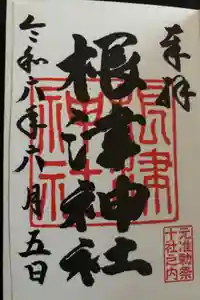 奉拝
根津神社
根津神社
元准勅祭
十社之内
令和六年六月五日